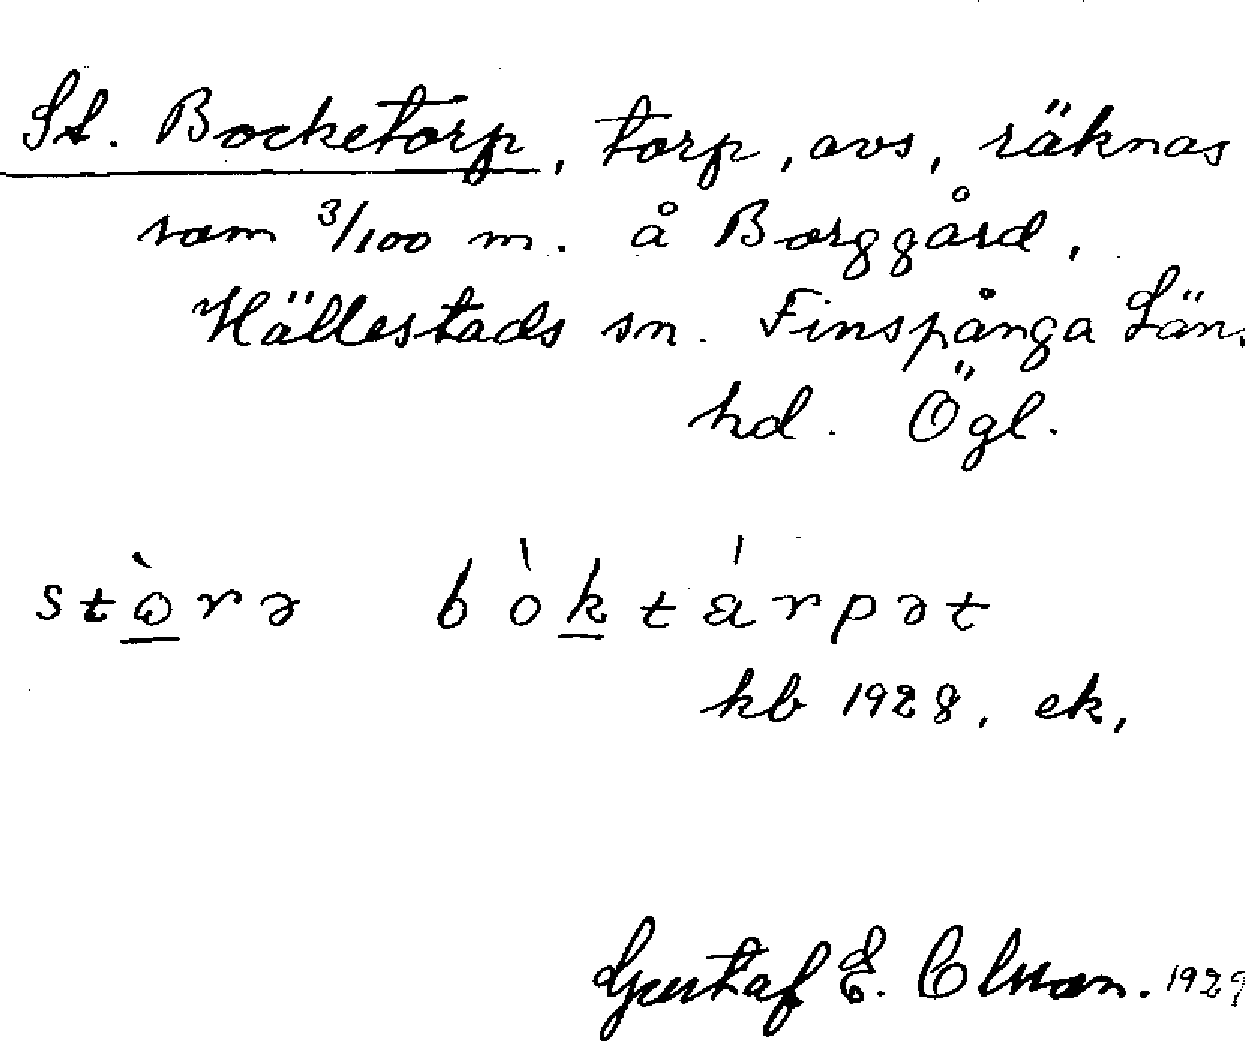 St. Bocketorp, torp, avs, räknas
som 3/100 m. å Borggård,
Hällestads sn. Finspånga Län.
hd. Ögl.
stòrə bòktárpət
kb 1928, ek,
Gustaf E. Olsson. 1929